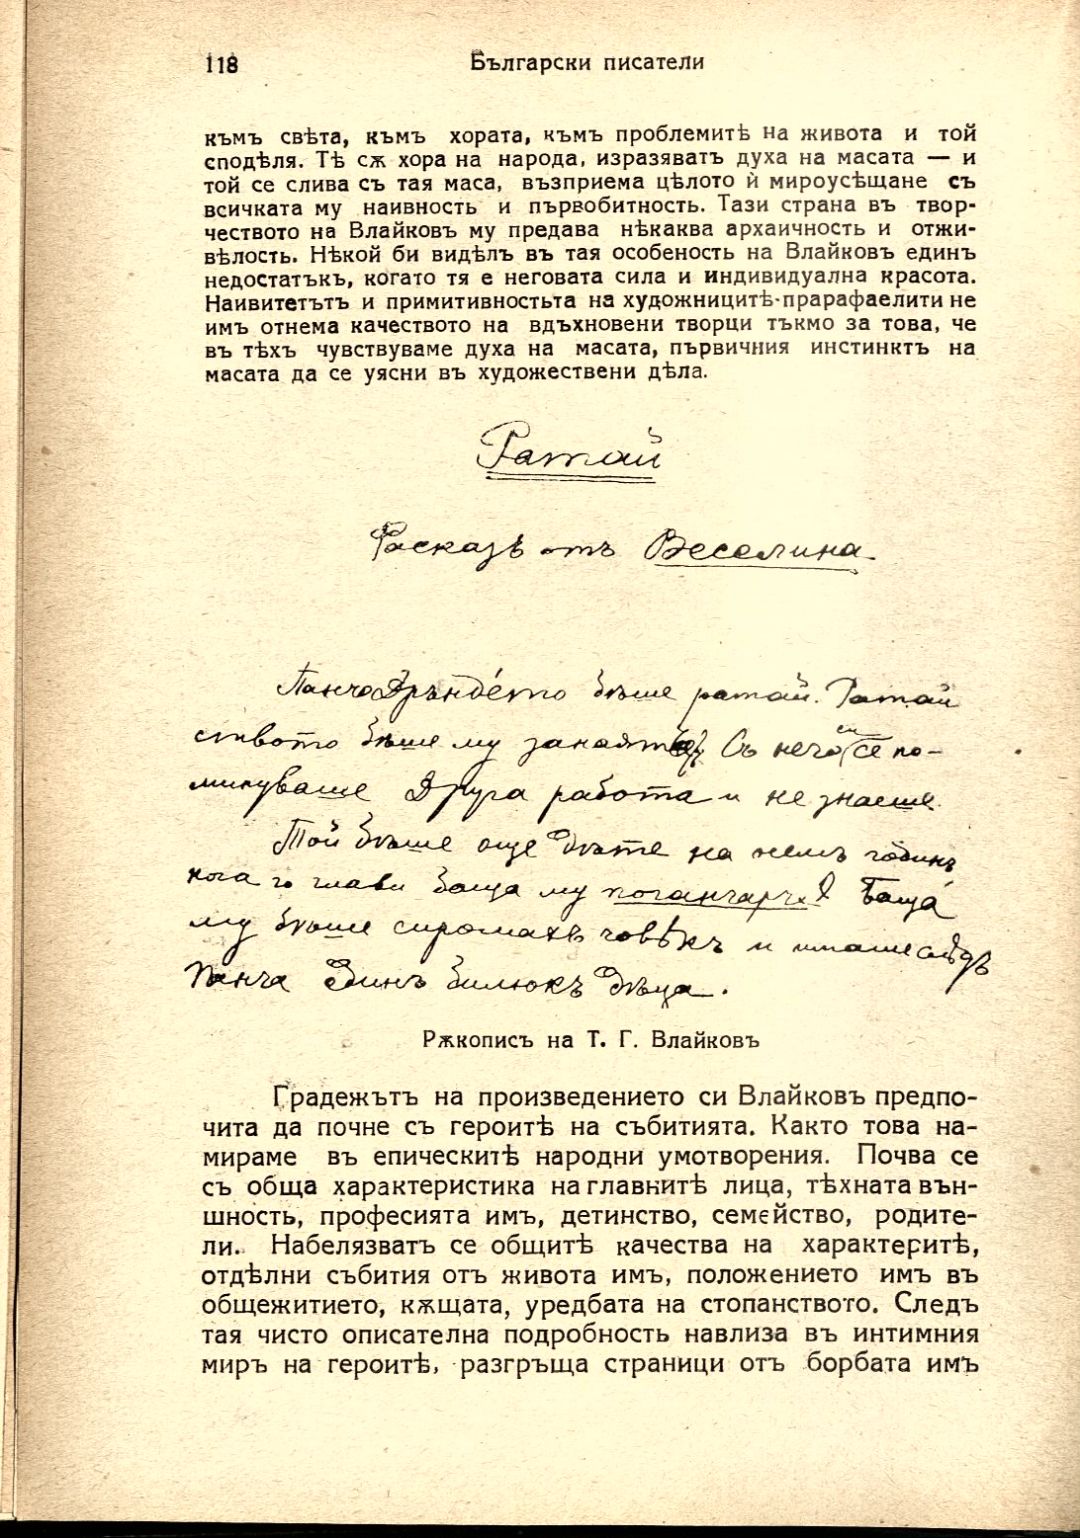 118 Български писатели
къмъ свѣта, къмъ хората, къмъ проблемитѣ на живота и той
сподѣля. Тѣ сѫ хора на народа, изразяватъ духа на масата — и
той се слива съ тая маса, възприема цѣлото ѝ мироусѣщане съ
всичката му наивность и първобитность. Тази страна въ твор-
чеството на Влайковъ му предава нѣкаква архаичность и отжи-
вѣлость. Нѣкой би видѣлъ въ тая особеность на Влайковъ единъ
недостатъкъ, когато тя е неговата сила и индивидуална красота.
Наивитетътъ и примитивностьта на художницитѣ-прарафаелити не
имъ отнема качеството на вдъхновени творци тъкмо за това, че
въ тѣхъ чувствуваме духа на масата, първичния инстинктъ на
масата да се уясни въ художествени дѣла.
Ратай
Расказъ отъ Веселина
Панчо Дрѫндето бѣше ратай. Ратай
ството бѣше му занаятъ Съ нечо си се по-
минуваше Друга работа и не знаеше.
Той бѣше още дѣте на немъ годинъ
кога го глави баща му поганчарче Баща
му бѣше сиромахъ човѣкъ и имаше слѣдъ
Панча единъ билюкъ дѣца.
Рѫкописъ на Т. Г. Влайковъ
Градежътъ на произведението си Влайковъ предпо-
чита да почне съ героитѣ на събитията. Както това на-
мираме въ епическитѣ народни умотворения. Почва се
съ обща характеристика на главнитѣ лица, тѣхната вън-
шность, професията имъ, детинство, семейство, родите-
ли. Набелязватъ се общитѣ качества на характеритѣ,
отдѣлни събития отъ живота имъ, положението имъ въ
общежитието, кѫщата, уредбата на стопанството. Следъ
тая чисто описателна подробность навлиза въ интимния
миръ на героитѣ, разгръща страници отъ борбата имъ